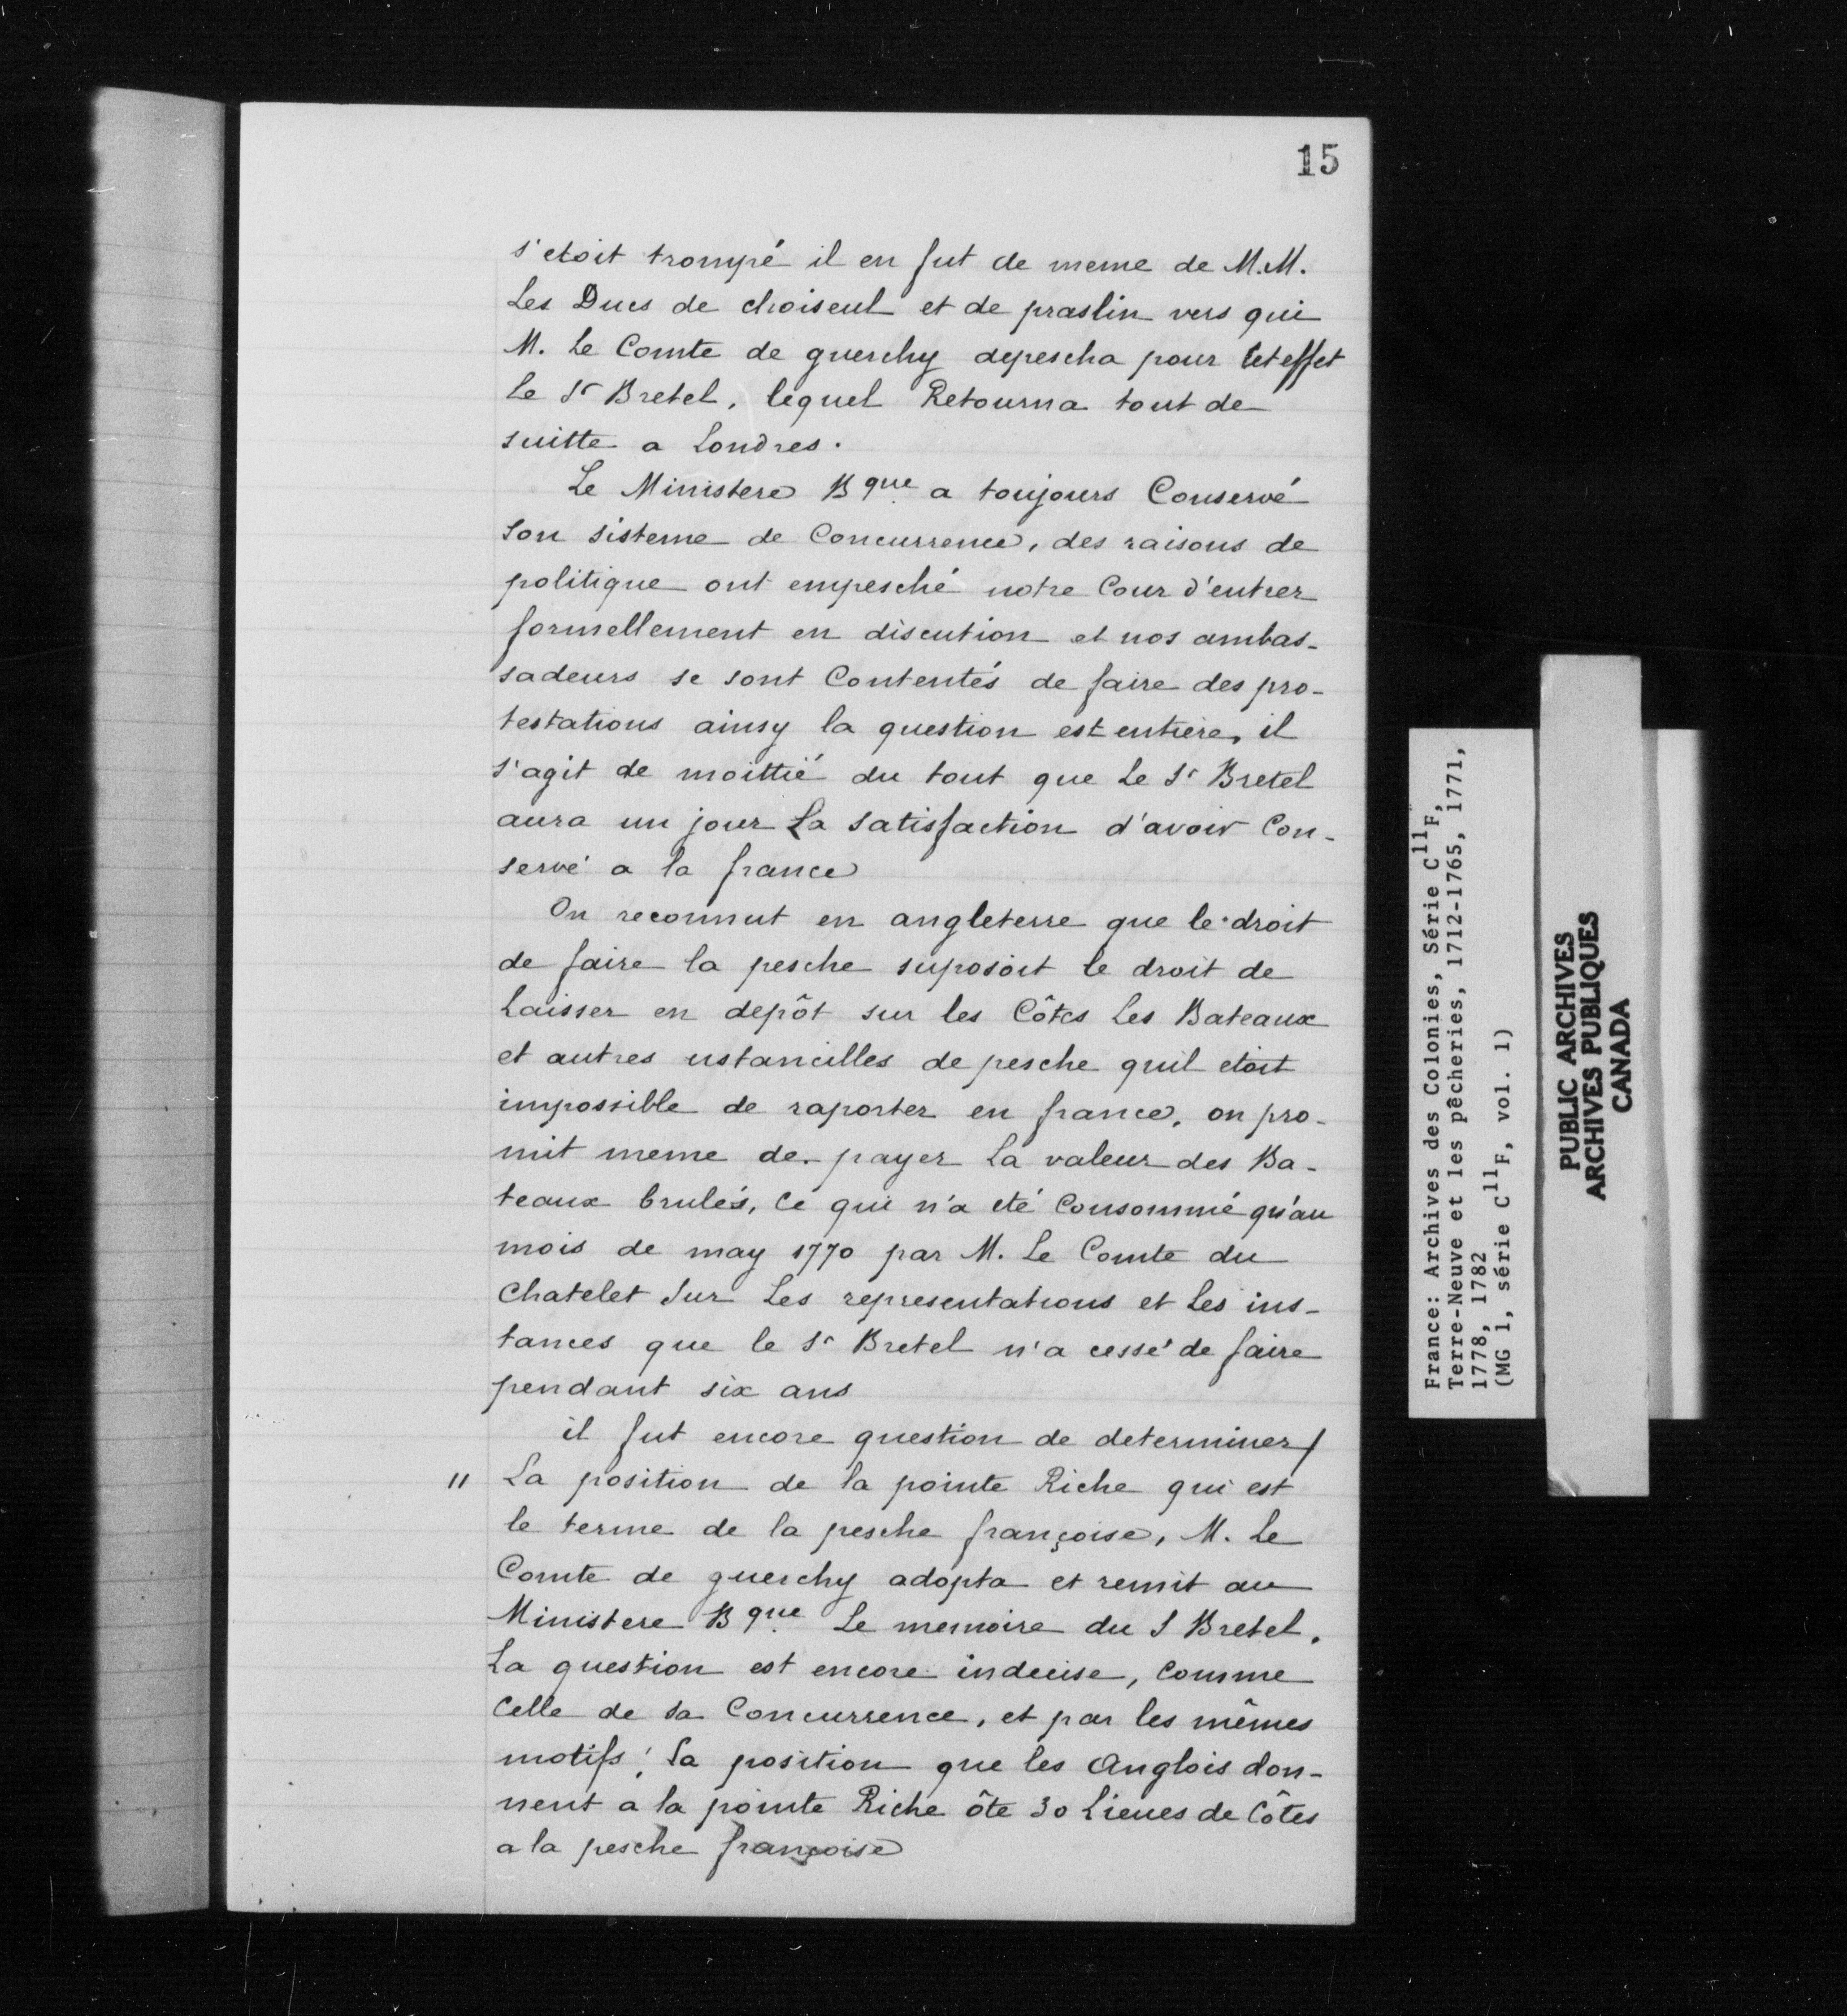 15
s'etoit trompé il en fut de meme de M.M.
Les Ducs de choiseul et de praslin vers qui
M. Le Comte de guerchy depescha pour Cet effet
le Sr Bretel, lequel Retourna tout de
suitte a Londres.
Le Ministere Bque a toujours Conservé
son sisteme de Concurrence, des raisons de
politique ont empesché notre Cour d'entrer
formellement en discution et nos ambas-
sadeurs se sont Contentés de faire des pro-
testations ainsy la question est entiere, il
s'agit de moittié du tout que Le Sr Bretel
aura un jour La satisfaction d'avoir Con-
servé a la france
On reconnut en angleterre que le droit
de faire la pesche suposoit le droit de
Laisser en depôt sur les Côtes Les Bateaux
et autres ustancilles de pesche quil etoit
impossible de raporter en france, on pro-
mit meme de payer La valeur des Ba-
teaux brulés, Ce qui n'a eté Consommé qu'au
mois de may 1770 par M. Le Comte du
Chatelet Sur Les representations et Les ins-
tances que le Sr Bretel n'a cessé de faire
pendant six ans
il fut encore question de determiner/
" La position de la pointe Riche qui est
le terme de la pesche françoise, M. Le
Comte de guerchy adopta et remit au
Ministere Bque Le memoire du S Bretel.
La question est encore indecise, Comme
Celle de sa Concurrence, et par les mêmes
motifs; la position que les Anglois don-
nent a la pointe Riche ôte 30 Lieues de Côtes
a la pesche françoise
France: Archives des Colonies, Série C11F,
Terre-Neuve et les pêcheries, 1712-1765, 1771,
1778, 1782
(MG 1, série C11F, vol. 1)
PUBLIC ARCHIVES
ARCHIVES PUBLIQUES
CANADA